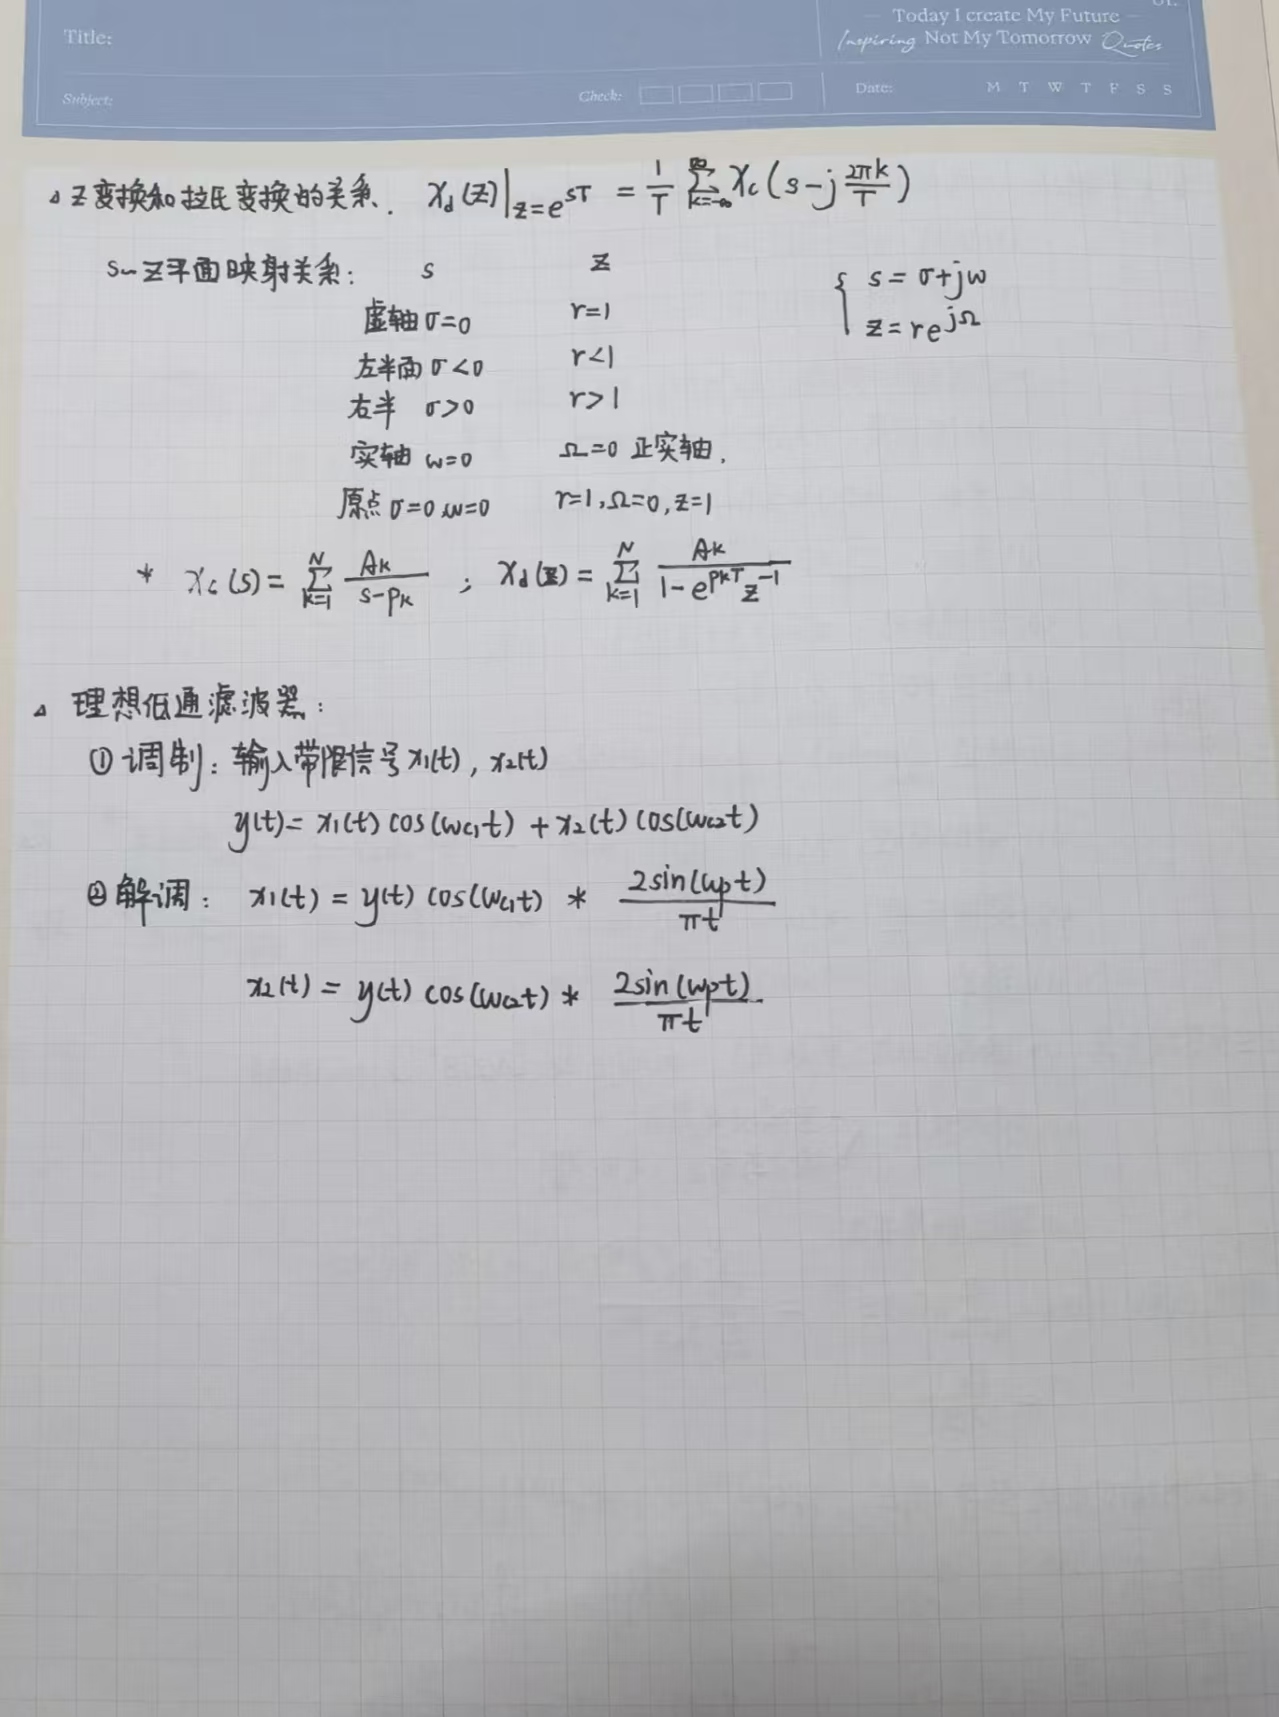 Title:
Today I create My Future
Inspiring Not My Tomorrow Quotes
Subject:
Check:
Date:
M T W T F S S
△ Z变换和拉氏变换的关系. X_d(z)|_{z=e^{sT}} = 1/T Σ_{k=-∞}^{∞} X_c(s-j 2πk/T)
S~Z平面映射关系: s z
{ s=σ+jω
虚轴 σ=0 r=1
z=re^{jΩ}
左半面 σ<0 r<1
右半 σ>0 r>1
实轴 ω=0 Ω=0 正实轴.
原点 σ=0 ω=0 r=1,Ω=0,z=1
* X_c(s)= Σ_{k=1}^{N} A_k/(s-p_k) ; X_d(z)= Σ_{k=1}^{N} A_k/(1-e^{p_kT}z^{-1})
△ 理想低通滤波器:
① 调制: 输入带限信号x1(t), x2(t)
y(t)= x1(t) cos(ωc1t) + x2(t) cos(ωc2t)
② 解调: x1(t) = y(t) cos(ωc1t) * 2sin(ωpt)/πt
x2(t) = y(t) cos(ωc2t) * 2sin(ωpt)/πt